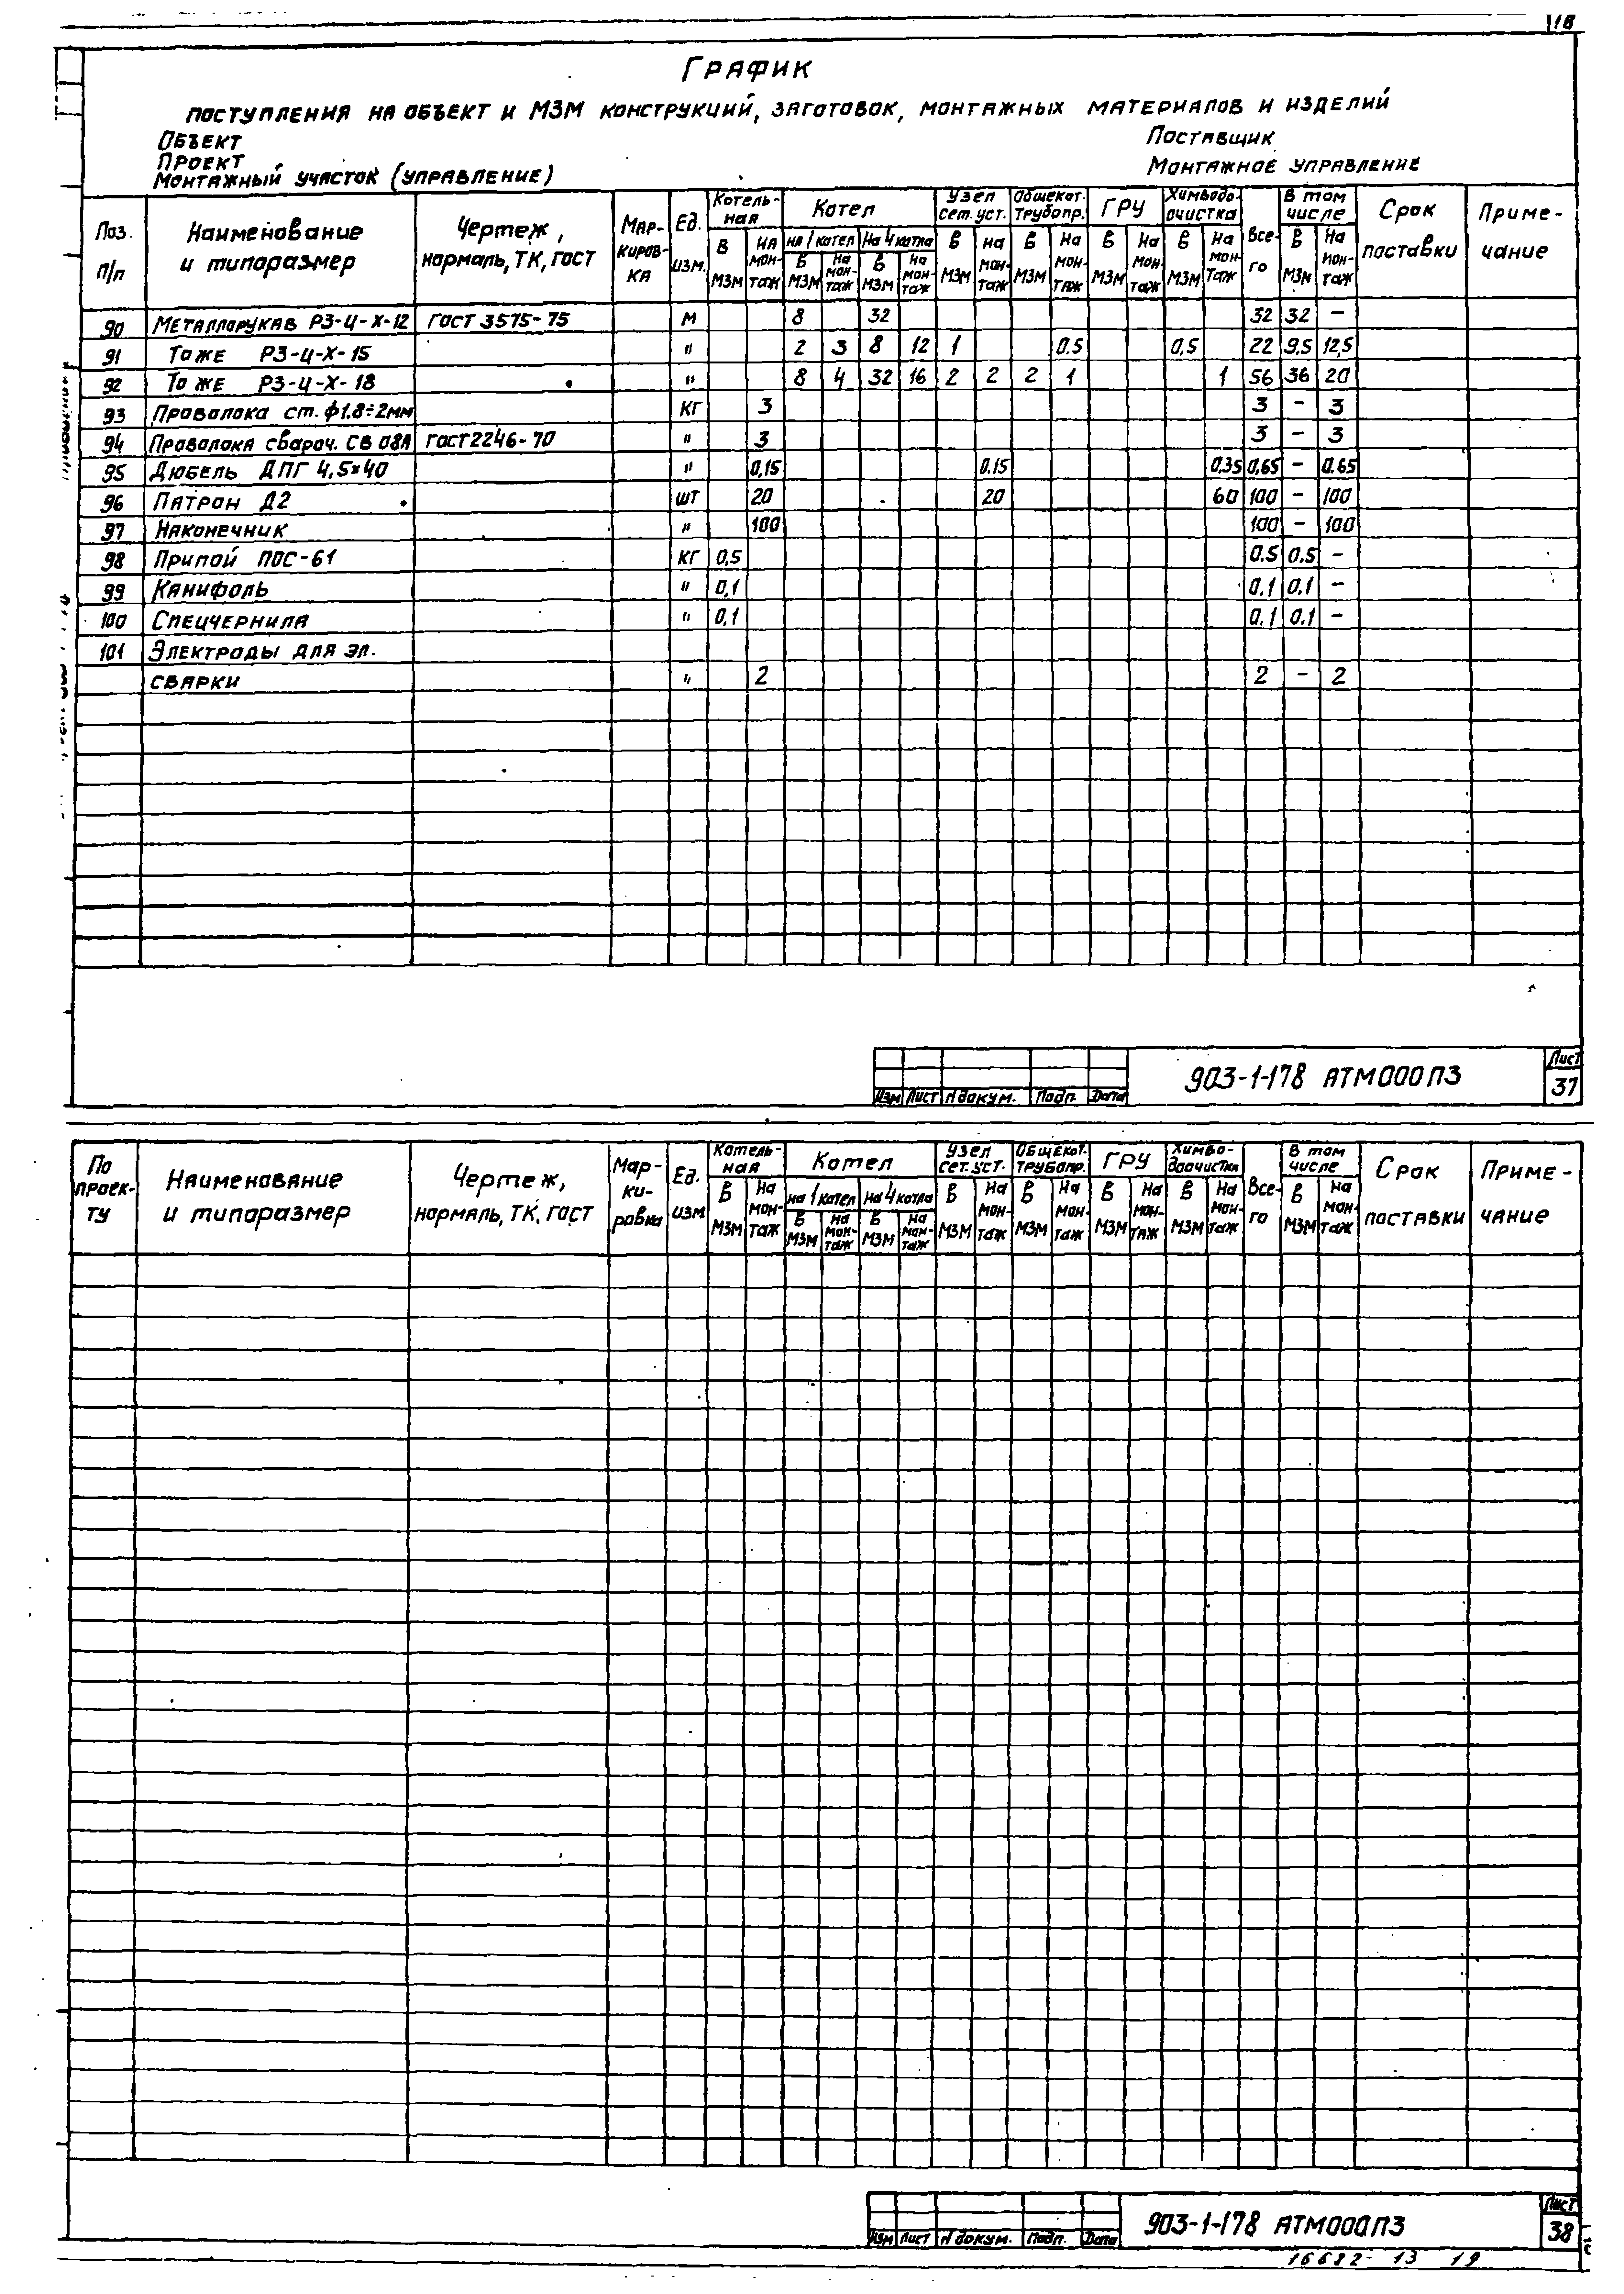 18
График
поступления на объект и МЗМ конструкций, заготовок, монтажных материалов и изделий
Объект
Поставщик
Проект
Монтажный участок (управление)
Монтажное управление
Поз. п/п | Наименование и типоразмер | Чертеж, нормаль, ТК, ГОСТ | Маркировка | Ед. изм. | Котельная | Котел | Узел сет. уст. | Общекот. трубопр. | ГРУ | Химводоочистка | Всего | В том числе | Срок поставки | Примечание
на 1 котел | На 4 котла
В МЗМ | На монтаж | В МЗМ | На монтаж | В МЗМ | На монтаж | В МЗМ | На монтаж | В МЗМ | На монтаж | В МЗМ | На монтаж | В МЗМ | На монтаж | В МЗМ | На монтаж
90 Металлорукав РЗ-Ц-Х-12 ГОСТ 3575-75 м 8 32 32 32 –
91 То же РЗ-Ц-Х-15 " 2 3 8 12 1 0.5 0,5 22 9,5 12,5
92 То же РЗ-Ц-Х-18 " 8 4 32 16 2 2 2 1 1 56 36 20
93 Проволока ст. ф1.8÷2мм кг 3 3 – 3
94 Проволока свароч. СВ 08А ГОСТ 2246-70 " 3 3 – 3
95 Дюбель ДПГ 4,5×40 " 0,15 0.15 0.35 0,65 – 0.65
96 Патрон Д2 шт 20 20 60 100 – 100
97 Наконечник " 100 100 – 100
98 Припой ПОС-61 кг 0,5 0.5 0.5 –
99 Канифоль " 0,1 0.1 0.1 –
100 Спецчернила " 0,1 0.1 0.1 –
101 Электроды для эл.
сварки " 2 2 – 2
Изм Лист N докум. Подп. Дата
903-1-178 АТМ000ПЗ
Лист
37
По проекту | Наименование и типоразмер | Чертеж, нормаль, ТК, ГОСТ | Маркировка | Ед. изм | Котельная | Котел | Узел сет. уст. | Общекот. трубопр. | ГРУ | Химводоочистка | Всего | В том числе | Срок поставки | Примечание
на 1 котел | На 4 котла
В МЗМ | На монтаж | В МЗМ | На монтаж | В МЗМ | На монтаж | В МЗМ | На монтаж | В МЗМ | На монтаж | В МЗМ | На монтаж | В МЗМ | На монтаж | В МЗМ | На монтаж
Изм Лист N докум. Подп. Дата
903-1-178 АТМ000ПЗ
Лист
38
16682-13 19